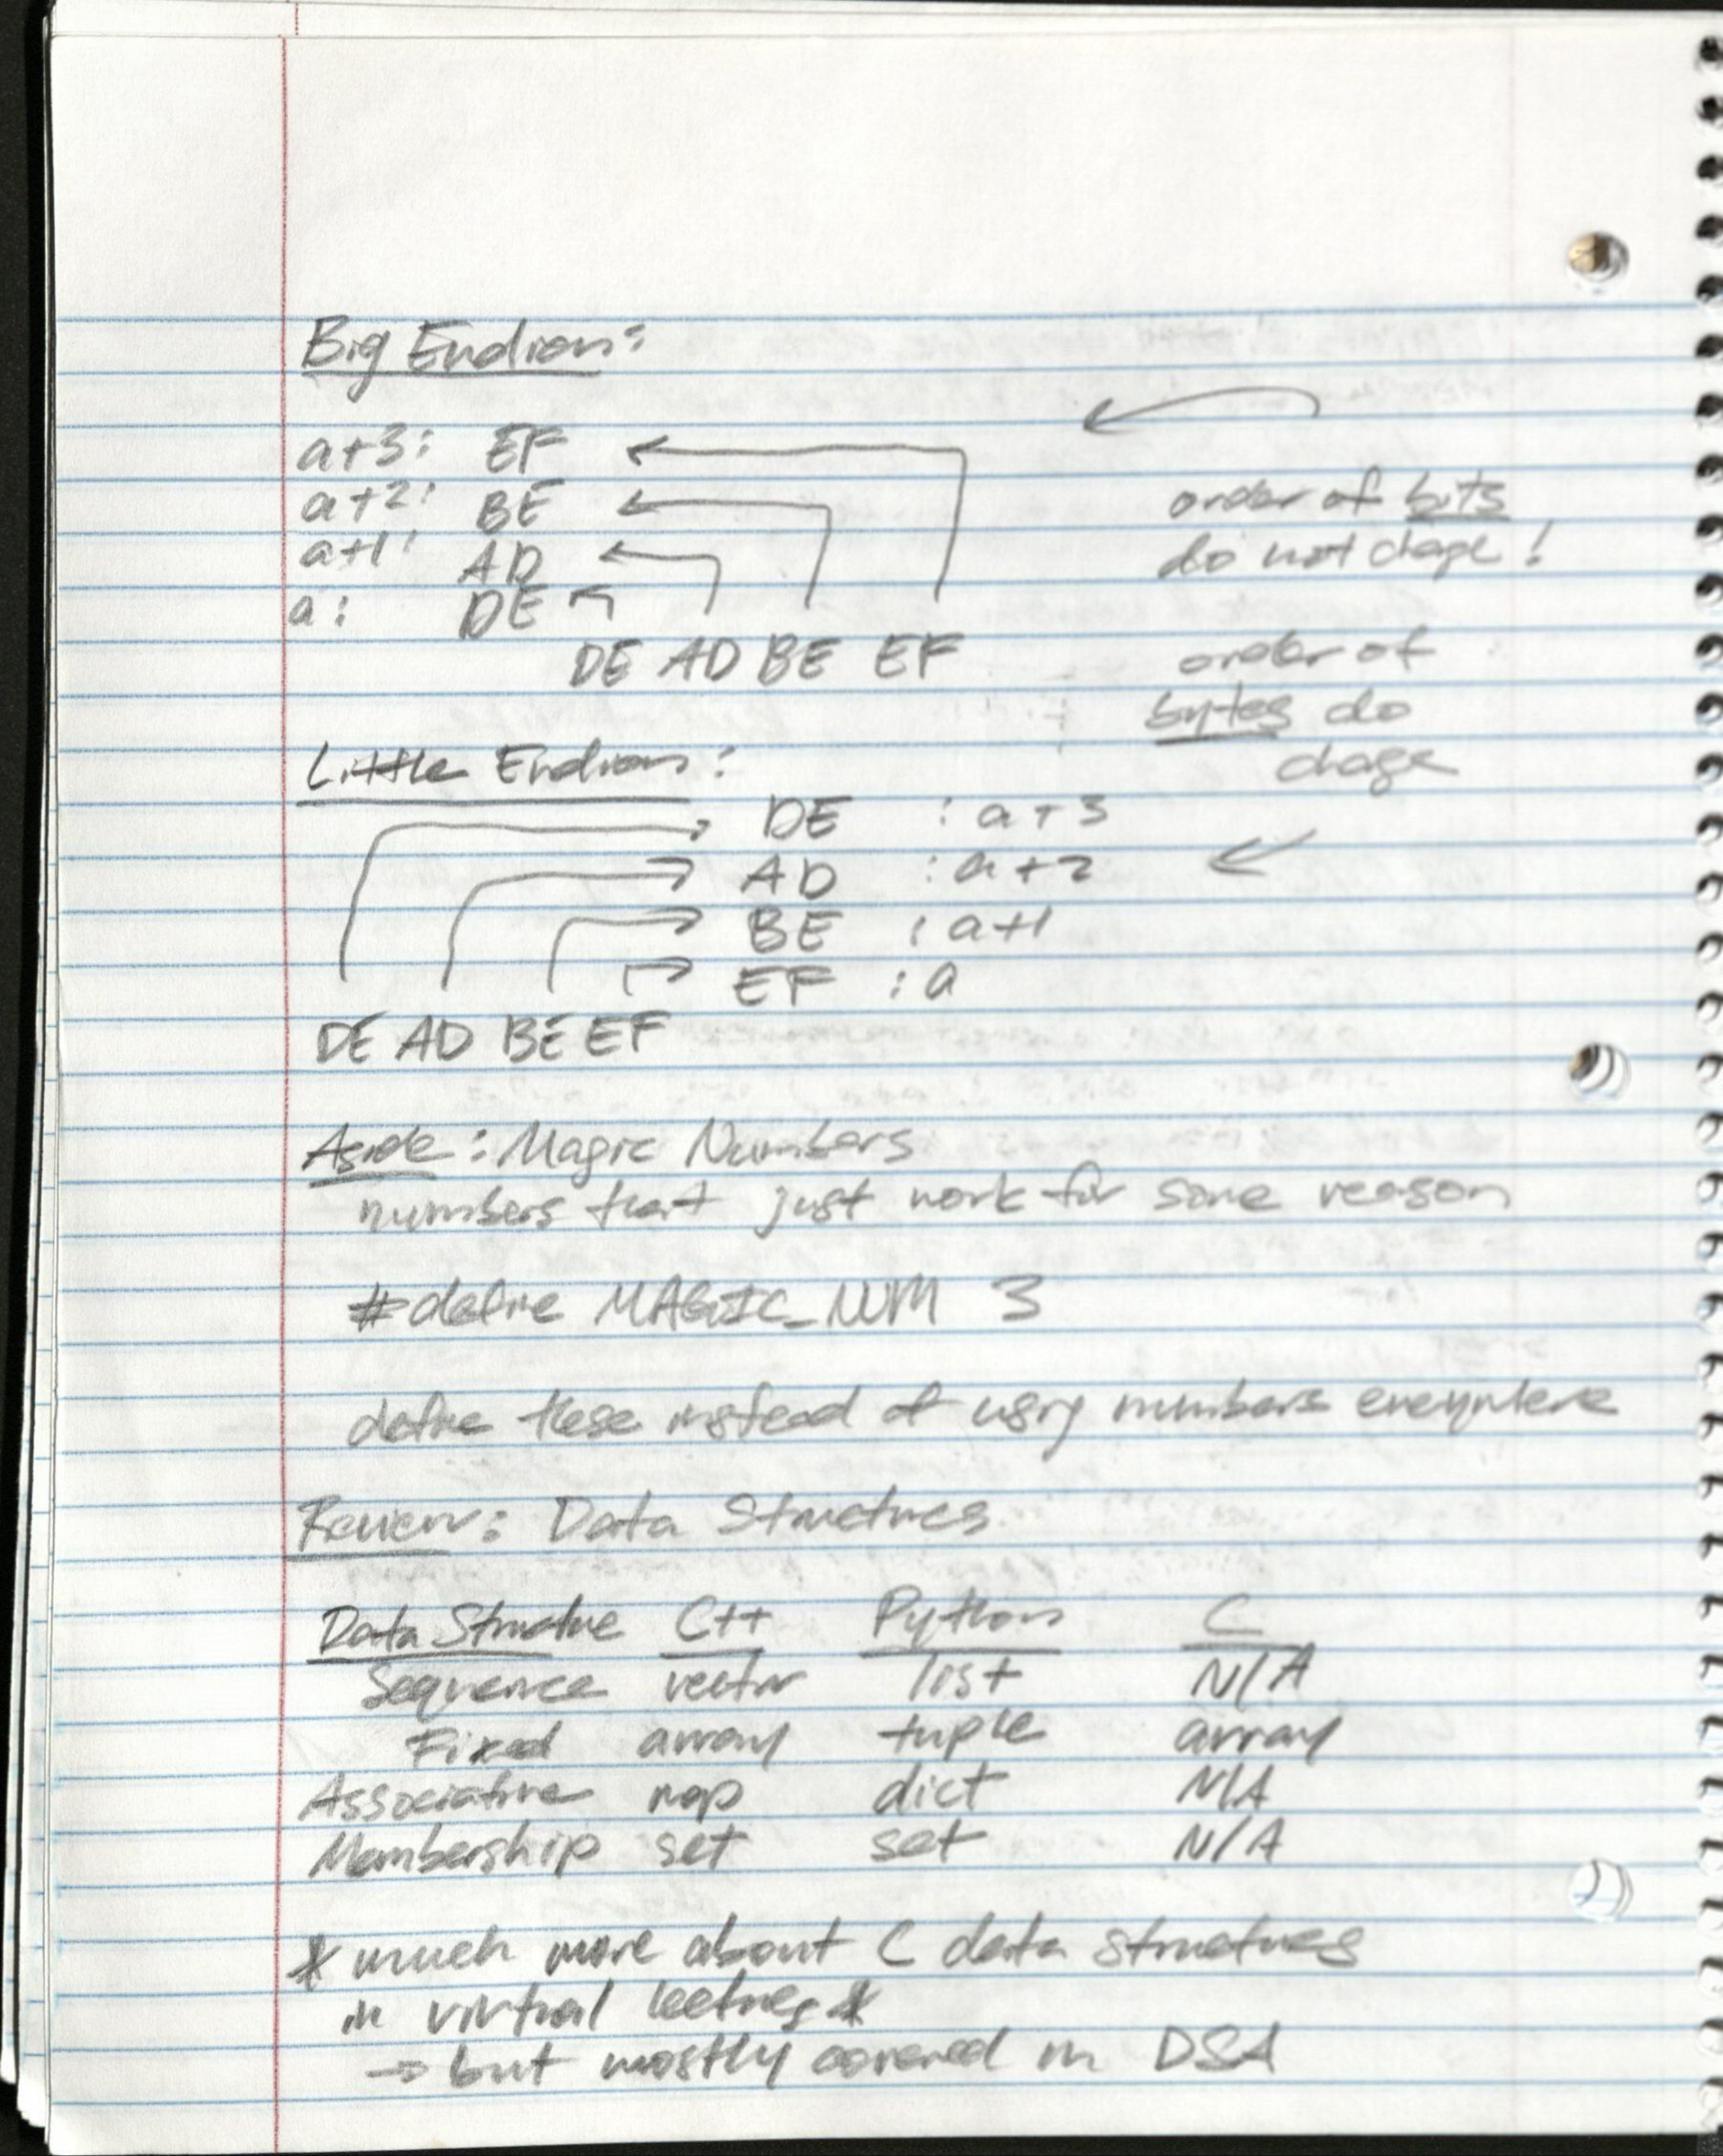 Big Endian:
a+3: EF
a+2: BE
a+1: AD
a: DE
DE AD BE EF
order of bits
do not chage!
order of
bytes do
chage
Little Endian:
DE : a+3
AD : a+2
BE : a+1
EF : a
DE AD BE EF
Aside: Magic Numbers
numbers that just work for some reason
#define MAGIC_NUM 3
define these instead of using numbers everywhere
Review: Data Structures
Data Structure C++ Python C
Sequence vector list N/A
Fixed array tuple array
Associative map dict N/A
Membership set set N/A
* much more about C data structures
in virtual lectures *
→ but mostly covered in DSA